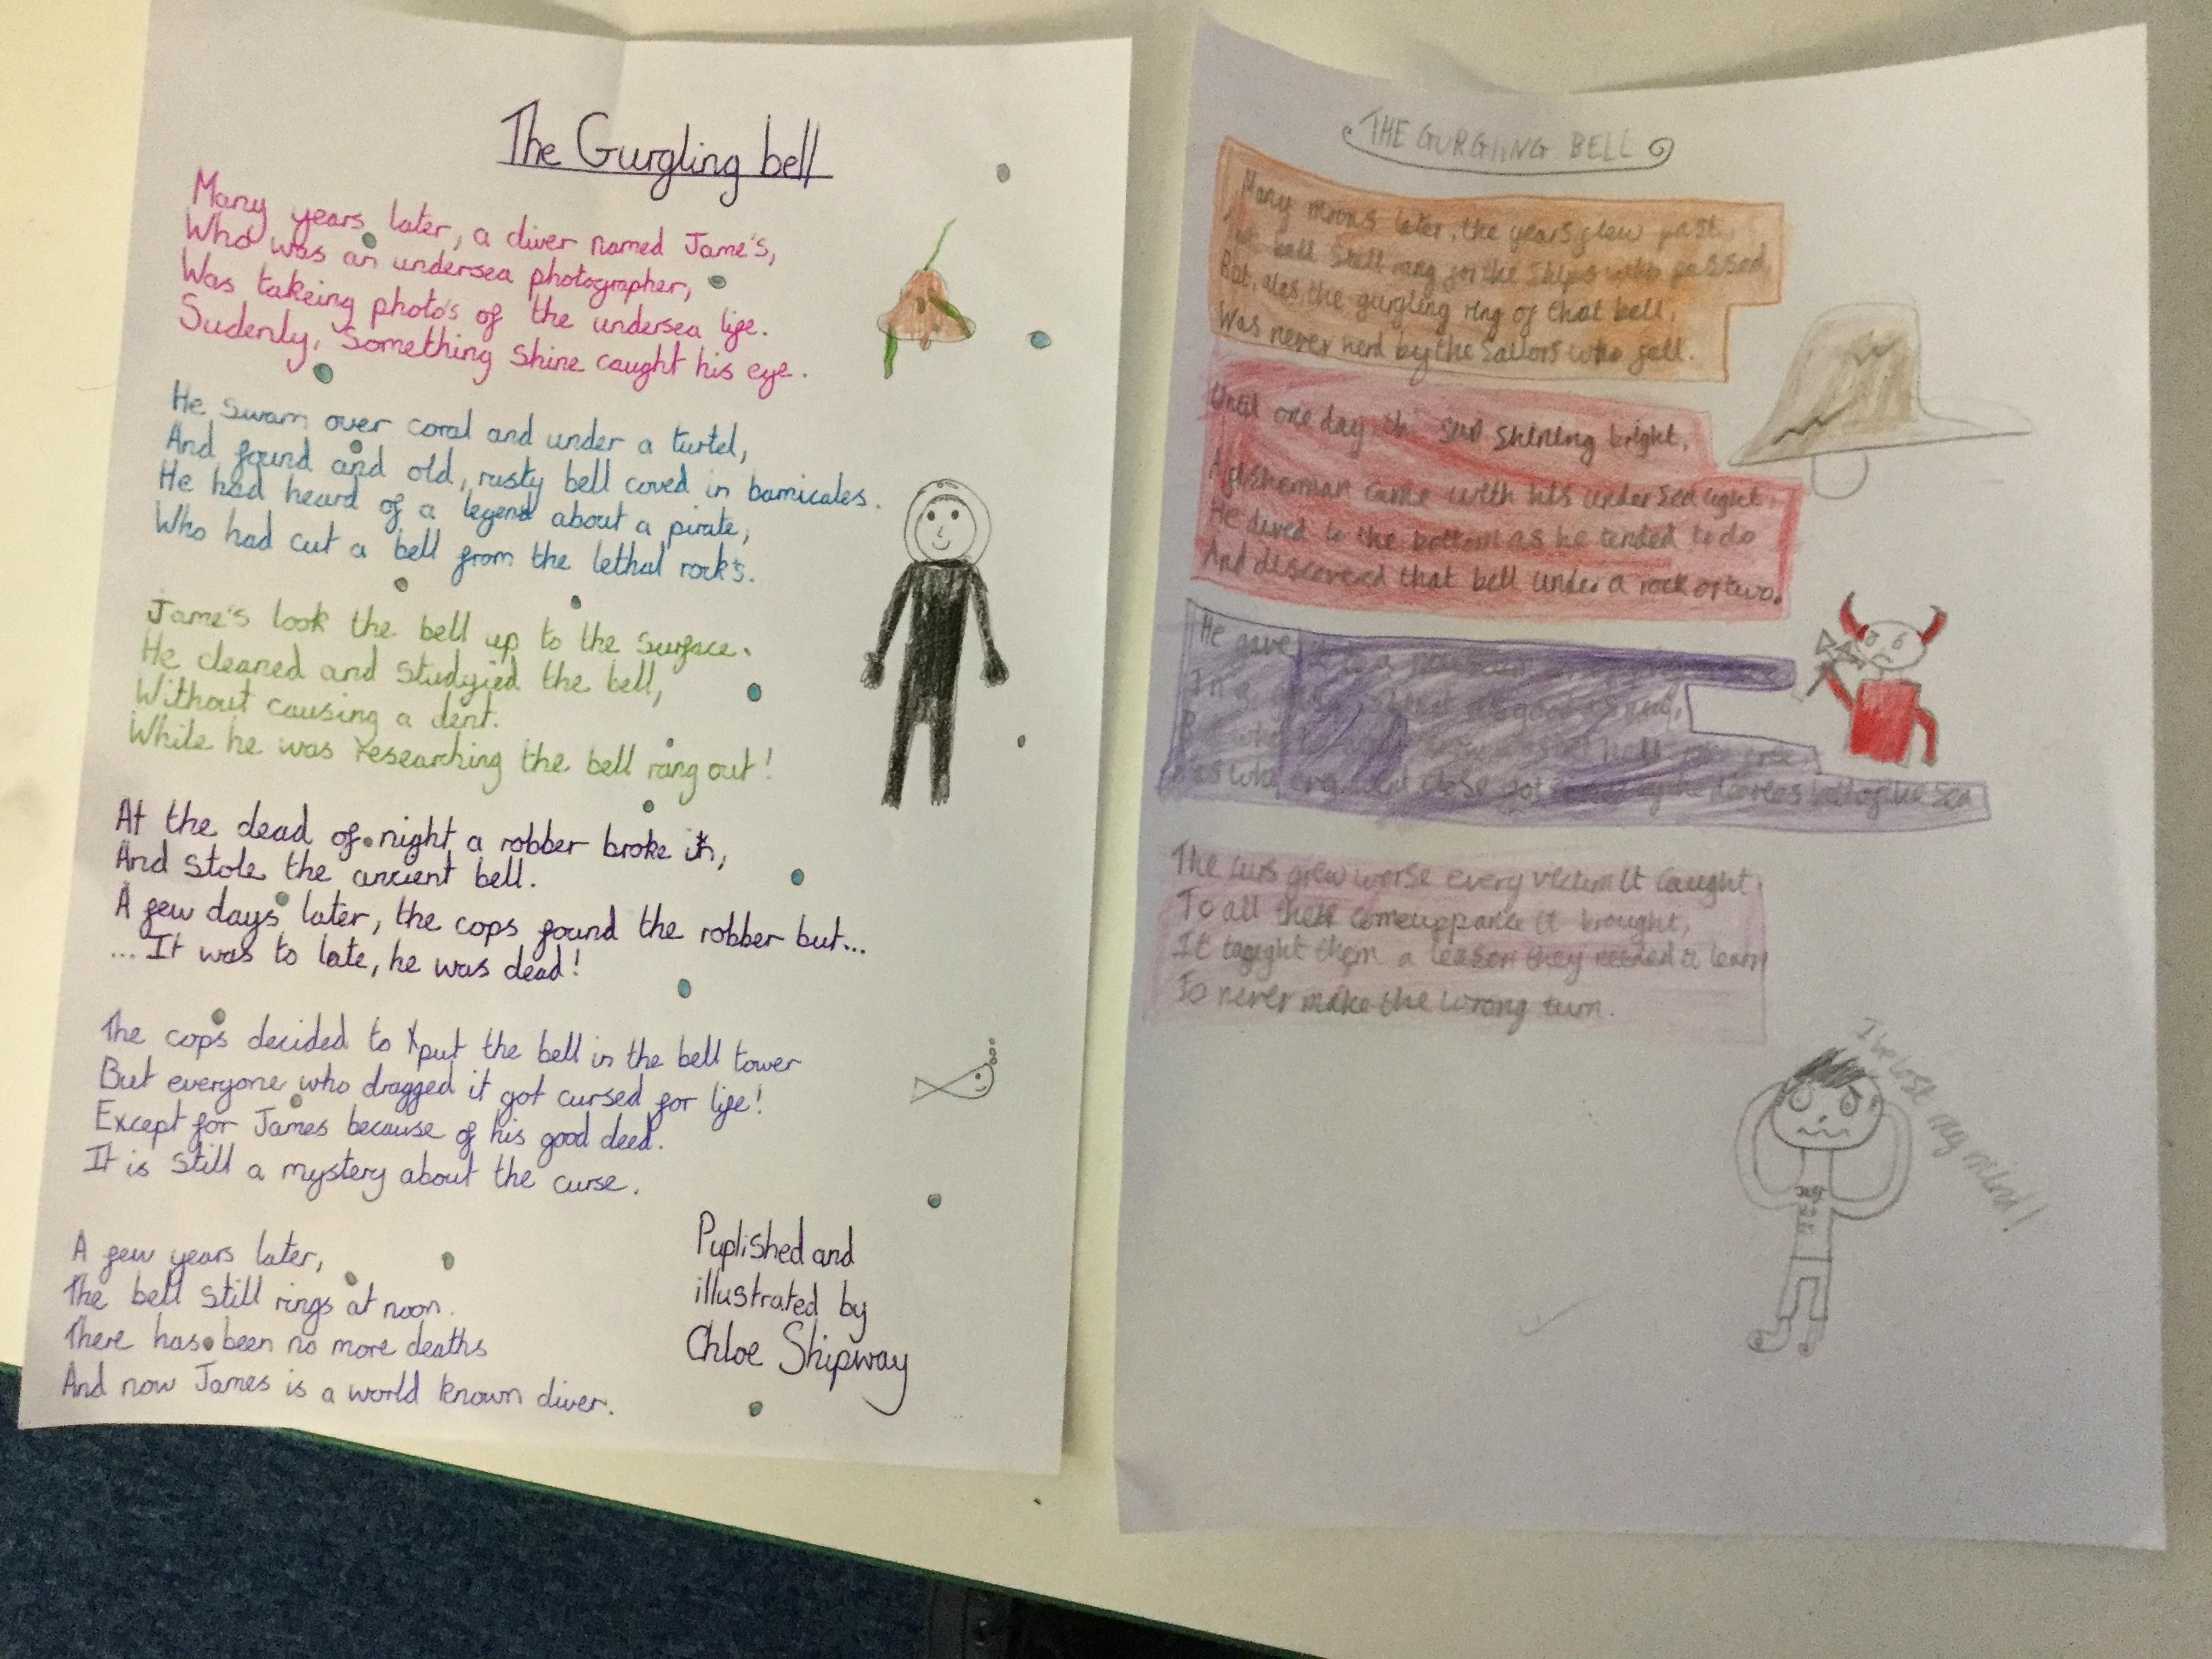 The Gurgling bell
Many years later, a diver named Jame's,
Who was an undersea photographer,
Was takeing photo's of the undersea life.
Sudenly, Something shine caught his eye.
He swam over coral and under a turtel,
And found and old, rusty bell coved in barnicales.
He had heard of a legend about a pirate,
Who had cut a bell from the lethal rock's.
Jame's look the bell up to the surface.
He cleaned and studyied the bell,
Without causing a dent.
While he was researching the bell rang out!
At the dead of night a robber broke in,
And stole the ancient bell.
A few days later, the cops found the robber but...
... It was to late, he was dead!
The cops decided to put the bell in the bell tower
But everyone who dragged it got cursed for life!
Except for James because of his good deed.
It is still a mystery about the curse.
A few years later,
The bell still rings at noon.
There has been no more deaths
And now James is a world known diver.
Puplished and
illustrated by
Chloe Shipway
THE GURGLING BELL
Many moons later, the years flew past,
bell still rang for the ships who passed,
But, alas, the gurgling ring of that bell,
Was never herd by the sailors who fell.
Until one day the sun shining bright,
A fisherman came with his under sea light,
He dived to the bottom as he tended to do
And discovered that bell under a rock or two.
He gave it to a
In a good as
But who
close got of the sea
The curs grew worse every victim it caught,
To all their comeuppance it brought,
It taught them a leason they needed to learn
To never make the wrong turn.
my mind!